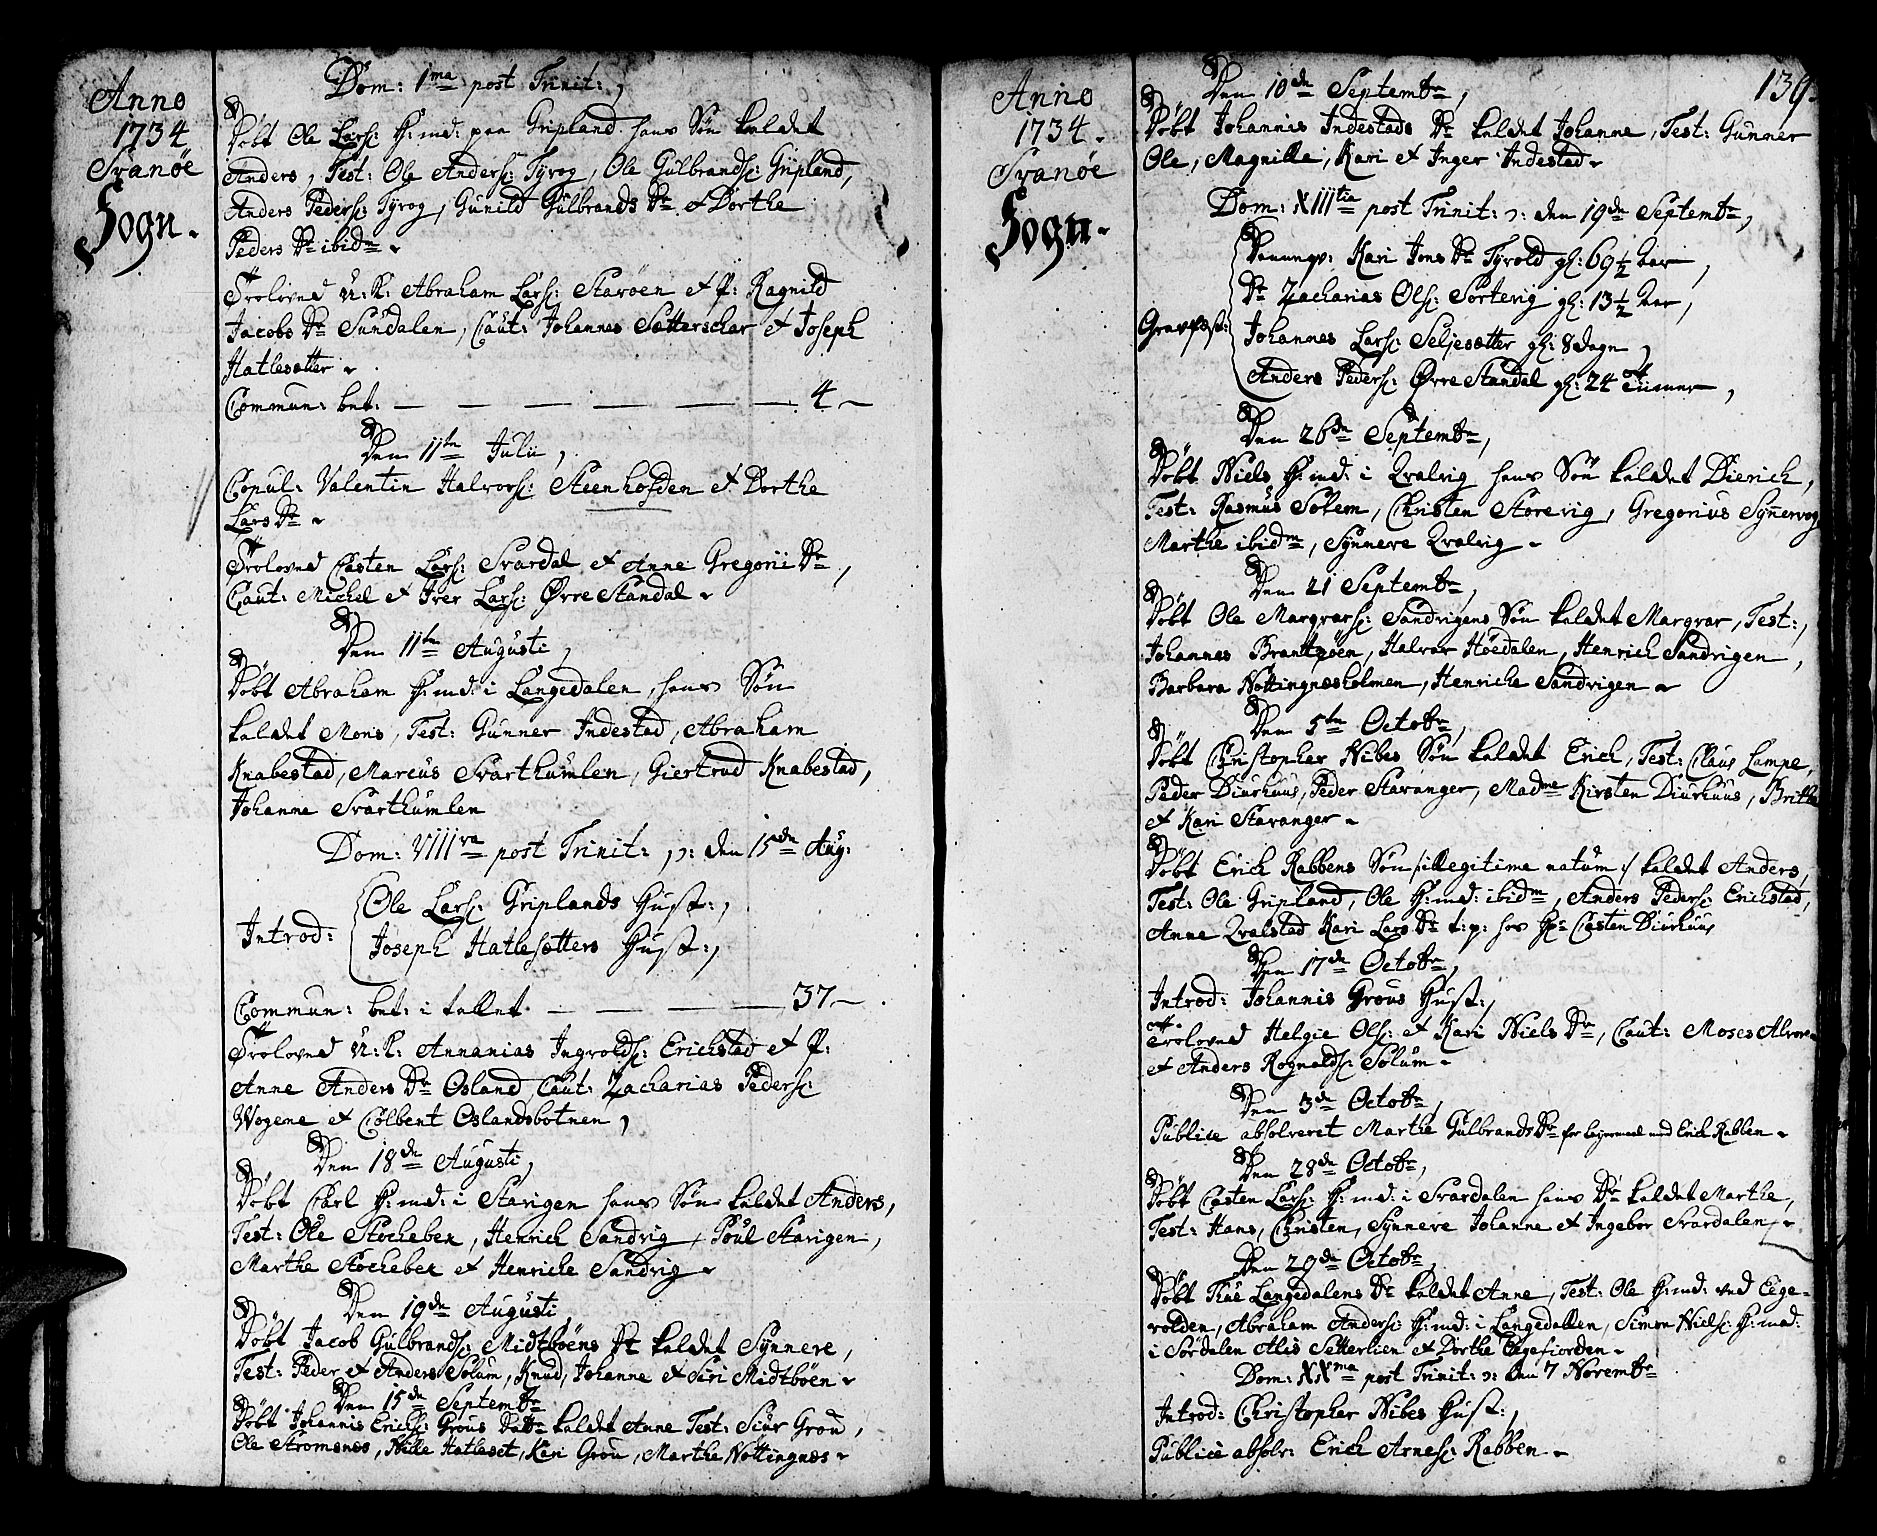 Anno
1734
Svanøe
Sogn.
Dom: 1ma post Trinit:,
Døbt Ole Lars: H:md: paa Gripland hans Søn kaldet
Anders, Test: Ole Anders: Tyvog, Ole Gulbrands: Gripland,
Anders Peders: Tyvog, Gunild Gulbrands Dr et Dorthe
Peders Dr ibidm.
Trolovned U:K: Abraham Lars: Starøen et P: Ragnild
Jacobs Dr Sundalen, Caut: Johannes Sætterschar et Joseph
Hatlesætter.
Commun: bet: — — — — — — 4 —
Den 11te Julii,
Copul: Valentin Halvors: Steenhofden et Dorthe
Lars Dr.
Trolovned Casten Lars: Svardal et Anne Gregorii Dr,
Caut: Michel et Iver Lars: Øvre Standal.
Den 11te Augusti,
Døbt Abraham H:md: i Langedalen, hans Søn
kaldet Mons, Test: Gunner Indestad, Abraham
Knabestad, Marcus Svarthumlen, Giertrud Knabestad,
Johanne Svarthumlen
Dom: VIIIva post Trinit: ɔ: den 15de Aug:
Introd: Ole Lars: Griplands Hust:,
Joseph Hatlesætters Hust:,
Commun: bet: i tallet — — — — 37 —
Trolovned U:K: Annanias Ingvolds: Erichstad et P:
Anne Anders Dr Osland, Caut: Zacharias Peders:
Wogene et Colbent Oslandsbotnen,
Den 18de Augusti,
Døbt Carl H:md: i Starigen hans Søn kaldet Anders,
Test: Ole Stocheben, Henrich Sandvig, Poul Starigen,
Marthe Stocheben et Henriche Sandvig.
Den 19de Augusti
Døbt Jacob Gulbrands: Midtbøens Dr kaldet Synneve,
Test: Peder et Anders Solum, Knud, Johanne et Siri Midtbøen.
Den 15de Septembr
Døbt Johannis Erichs: Grous Datr kaldet Anne Test: Siur Grou,
Ole Stromsnæs, Nille Hatleset, Kari Grou, Marthe Nottingnæs.
Anno
1734.
Svanøe
Sogn.
139.
Den 10de Septembr,
Døbt Johannis Indestads Dr kaldet Johanne, Test: Gunner
Ole, Magnille, Kari et Inger Indestad.
Dom: XIIItia post Trinit: ɔ: den 19de Septembr,
Kari Jons Dr Tyvold gl: 69 1/2 Aar,
Dr Zacharias Ols: Sortevig gl: 13 1/2 Aar,
Gravfæst: Johannes Lars: Seljesætter gl: 8 dage,
Anders Peders: Øvre Standal gl: 24 Timer,
Den 26de Septembr,
Døbt Niels H:md: i Qvalvig hans Søn kaldet Dierich,
Test: Rasmus Solem, Christen Storevig, Gregorius Synervog
Marthe ibidm, Synneve Qvalvig.
Den 21 Septembr,
Døbt Ole Margvars: Sandvigens Søn kaldet Margvar, Test:,
Johannes Brantzøen, Halvor Høedalen, Henrich Sandvigen,
Barbara Nottingnæsholmen, Henriche Sandvigen.
Den 5te Octobr,
Døbt Christopher Nibes Søn kaldet Erich, Test: Claus Lampe,
Peder Diurhuus, Peder Stavanger, Madme Kirsten Diurhuus, Britha
et Kari Stavanger.
Døbt Erich Rabbens Søn /: illegitime natum :/ kaldet Anders,
Test: Ole Gripland, Ole H:md: ibidm, Anders Peders: Erichstad,
Anne Qvalstad Kari Lars Dr t:p: hos Hr Casten Diurhuus
Den 17de Octobr,
Introd: Johannis Grous Hust:,
Trolovned Helgie Ols: et Kari Niels Dr, Caut: Moses Alvor
et Anders Rognalds: Solum.
Den 3de Octobr,
Publice absolveret Marthe Gulbrands Dr for lejermaal med Erich Rabben.
Den 28de Octobr,
Døbt Casten Lars: H:md: i Svardalen hans Dr kaldet Marthe,
Test: Hans, Christen, Synneve Johanne et Ingebor Svardalen.
Den 29de Octobr,
Døbt Thae Langedalens Dr kaldet Anne, Test: Ole H:md: ved Eige-
volden, Abraham Anders: H:md: i Langedallen, Simon Niels: H:md:
i Sørdalen Alis Setterlien et Dorthe Eigefiorden.
Dom: XXma post Trinit: ɔ: den 7 Novembr
Introd: Christopher Nibes Hust:,
Publice absolv: Erich Arnes: Rabben.